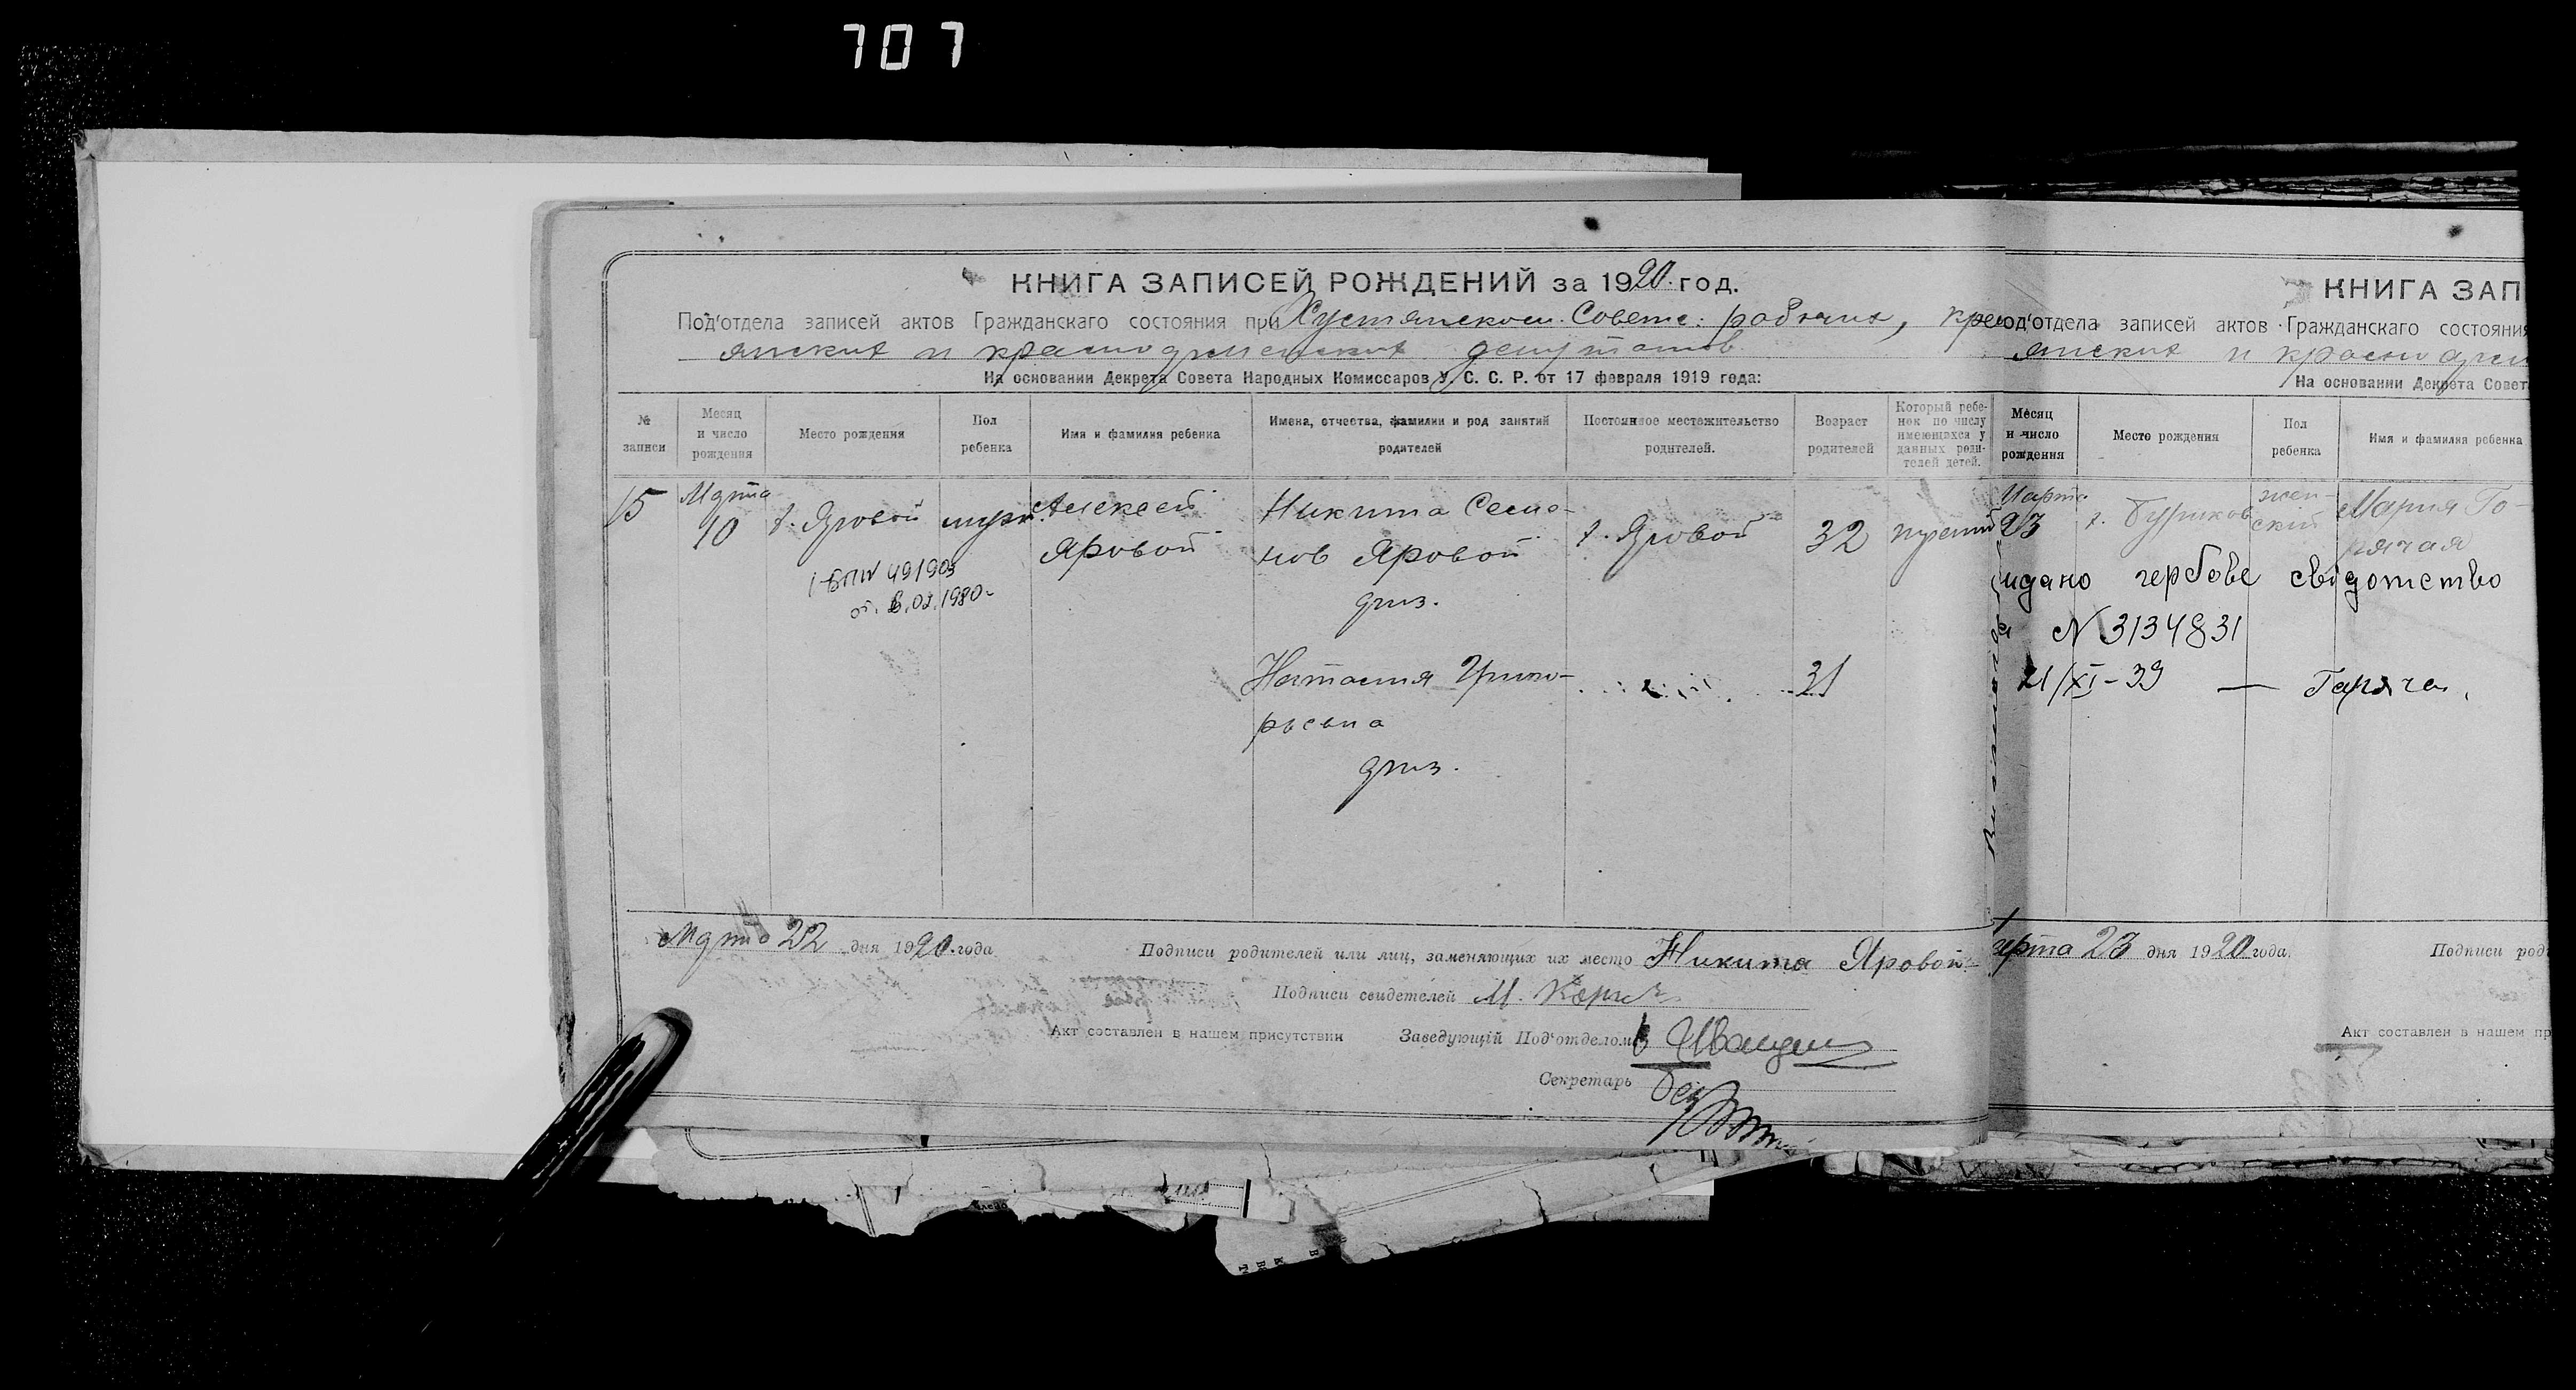 707
КНИГА ЗАПИСЕЙ РОЖДЕНИЙ за 1920 год.
Под'отдела записей актов Гражданскаго состояния при Хустянском Совете рабочих, кресть
янских и красноармейских депутатов
На основании Декрета Совета Народных Комиссаров У. С. С. Р. от 17 февраля 1919 года:
№ записи
Месяц и число рождения
Место рождения
Пол ребенка
Имя и фамилия ребенка
Имена, отчества, фамилии и род занятий родителей
Постоянное местожительство родителей.
Возраст родителей
Который ребенок по числу имеющихся у данных родителей детей.
15
Марта 10
х. Яровой
муж.
Алексей Яровой
Никита Семенов Яровой
х. Яровой
32
третий
491903
1980
Натасия Григорьевна
31
Марта 22 дня 1920 года
Подписи родителей или лиц, заменяющих их место Никита Яровой
Подписи свидетелей М.
Акт составлен в нашем присутствии
Заведующій Под'отделом
Секретарь
КНИГА ЗАП
од'отдела записей актов Гражданскаго состояния
янских и красноарм
На основании Декрета Совет
Месяц и число рождения
Место рождения
Пол ребенка
Имя и фамилия ребенка
Марта 23
х.
женский
Мария Горячая
видано гербове свідотство
N 3134831
21/XI-39 — Гаряча
арта 23 дня 1920 года.
Подписи род
Акт составлен в нашем пр